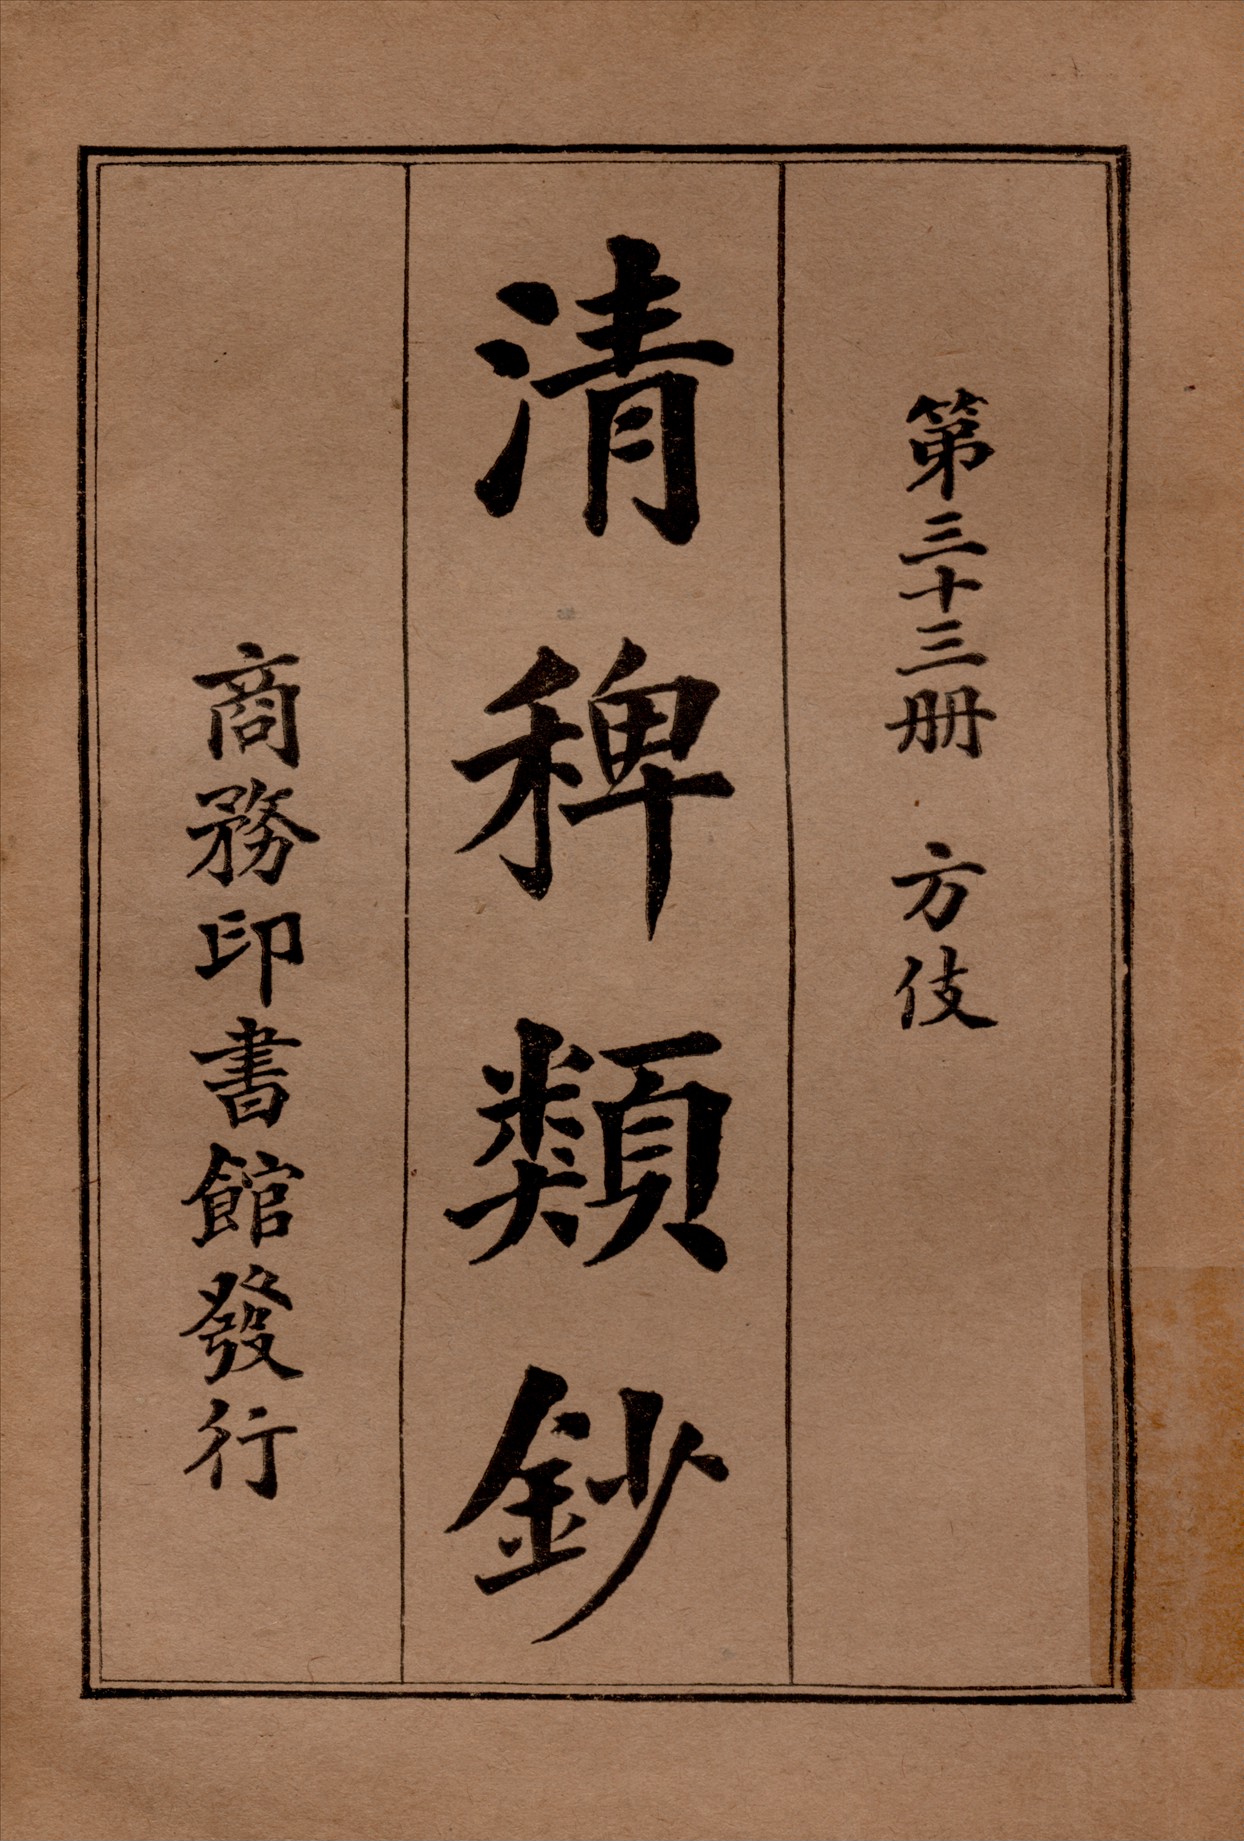 第三十三册 方伎
清稗類鈔
商務印書館發行